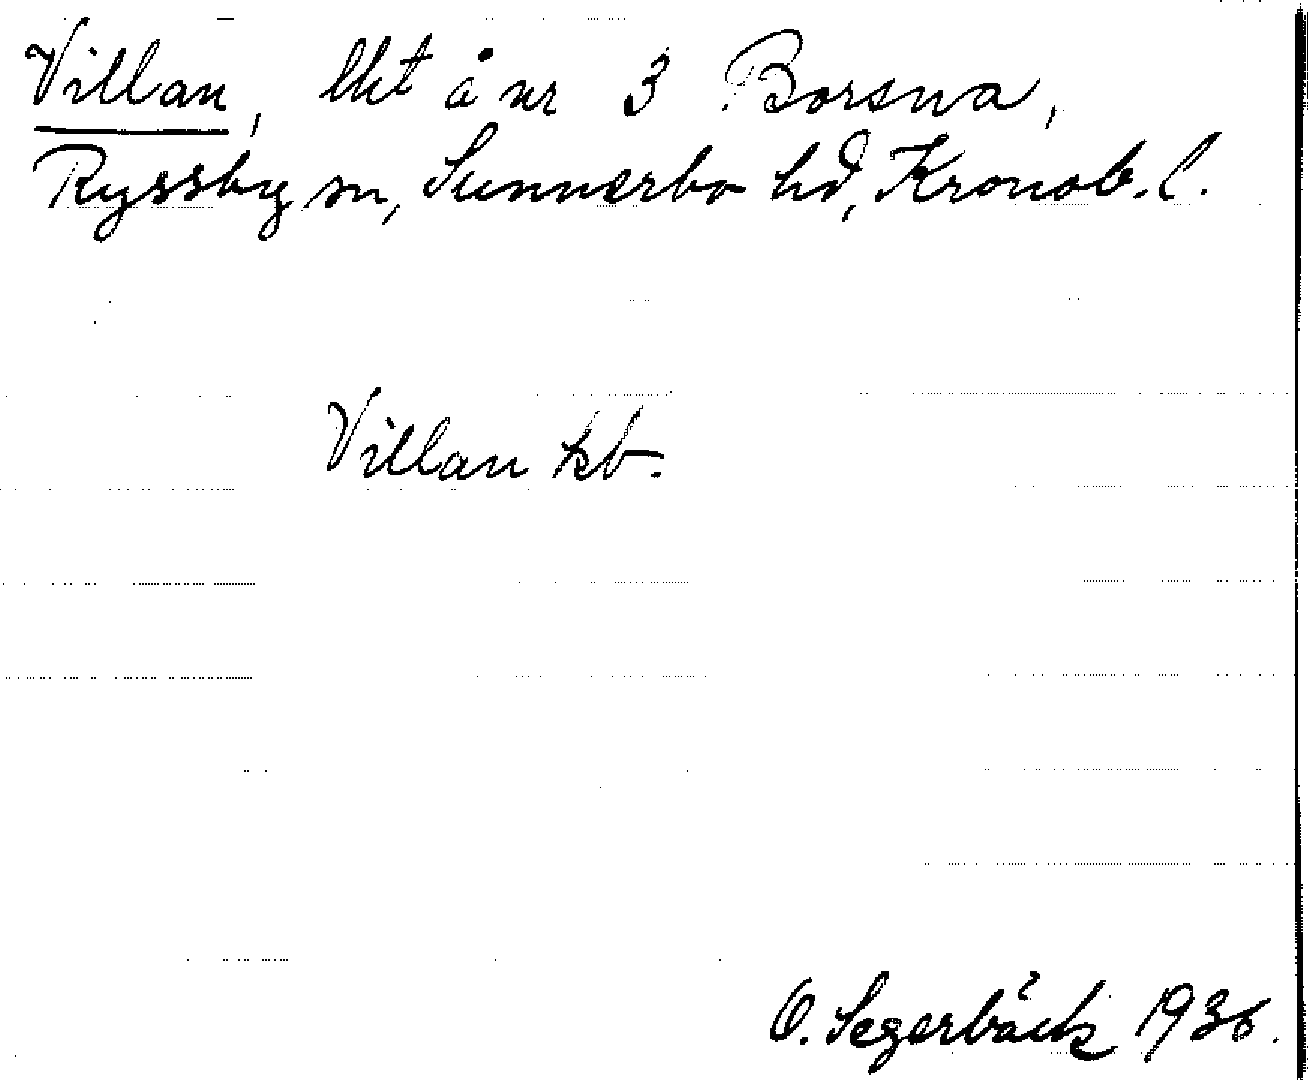 Villan, lht å nr 3 Borsna,
Ryssby sn, Sunnerbo hd, Kronob. l.
Villan kb.
O. Segerbäck 1936.